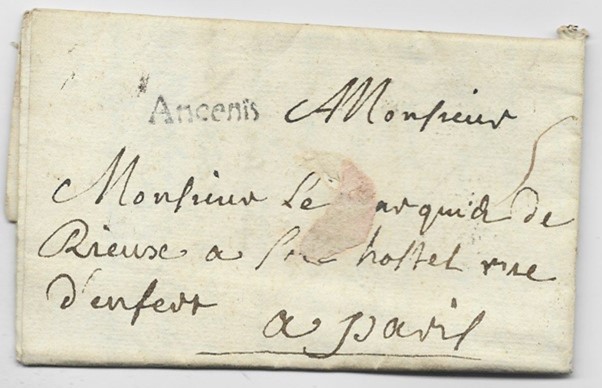 Ancenis Monsieur
Monsieur Le arquis de
Rieux a son hostel rue
d'enfert
a paris